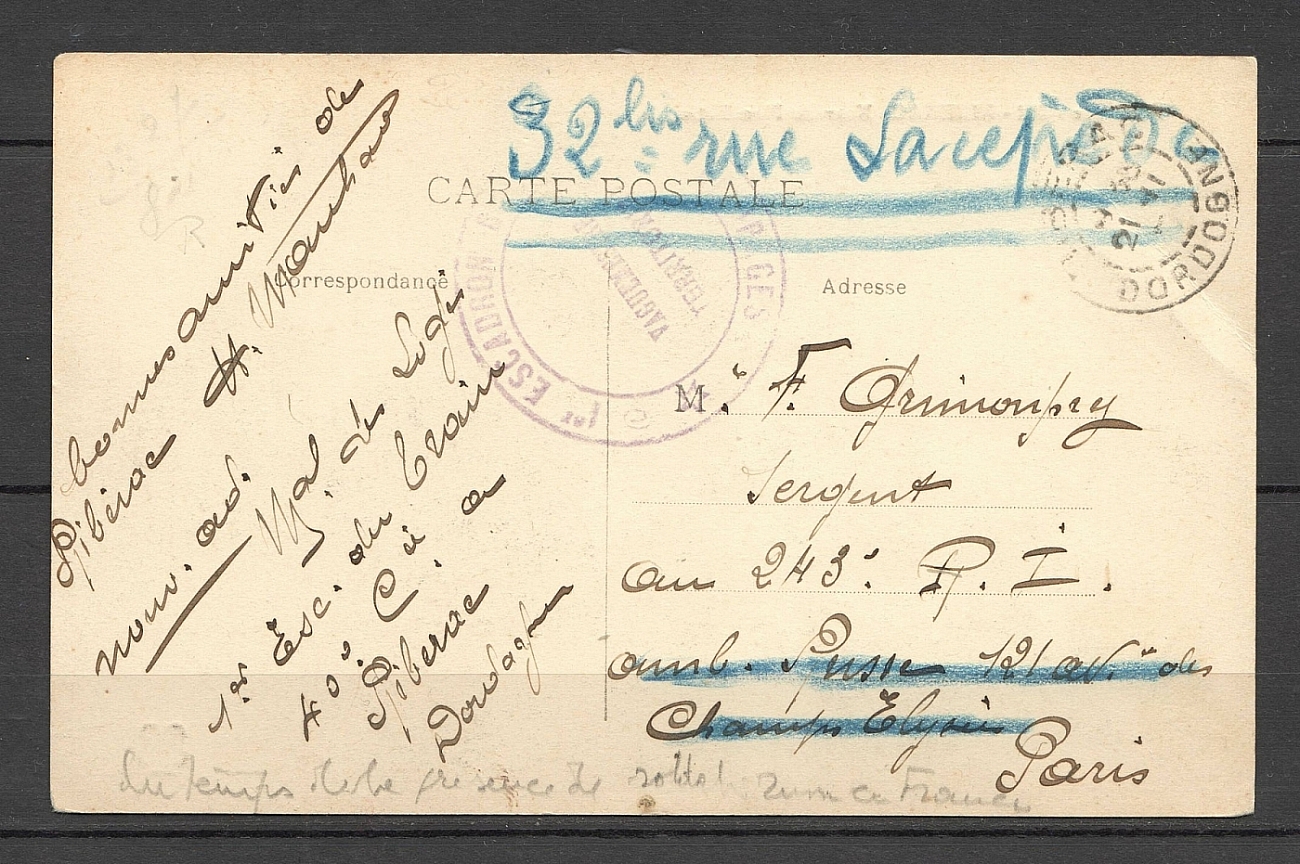 32 bis rue Lacepède
CARTE POSTALE
Correspondance
Adresse
bonnes amitiés de
Ribérac H.
nouv. ad.
Mal des Logis
1er Esc. du Train
40e Cie a
Riberac
Dordogne
M. F. Grimonprez
Sergent
au 243e R. I.
amb. Russe 121 av. des
Champs Elysées
Paris
du temps de la présence de soldats russes en France
1er ESCADRON
VAGUEMESTRE
DORDOGNE
21